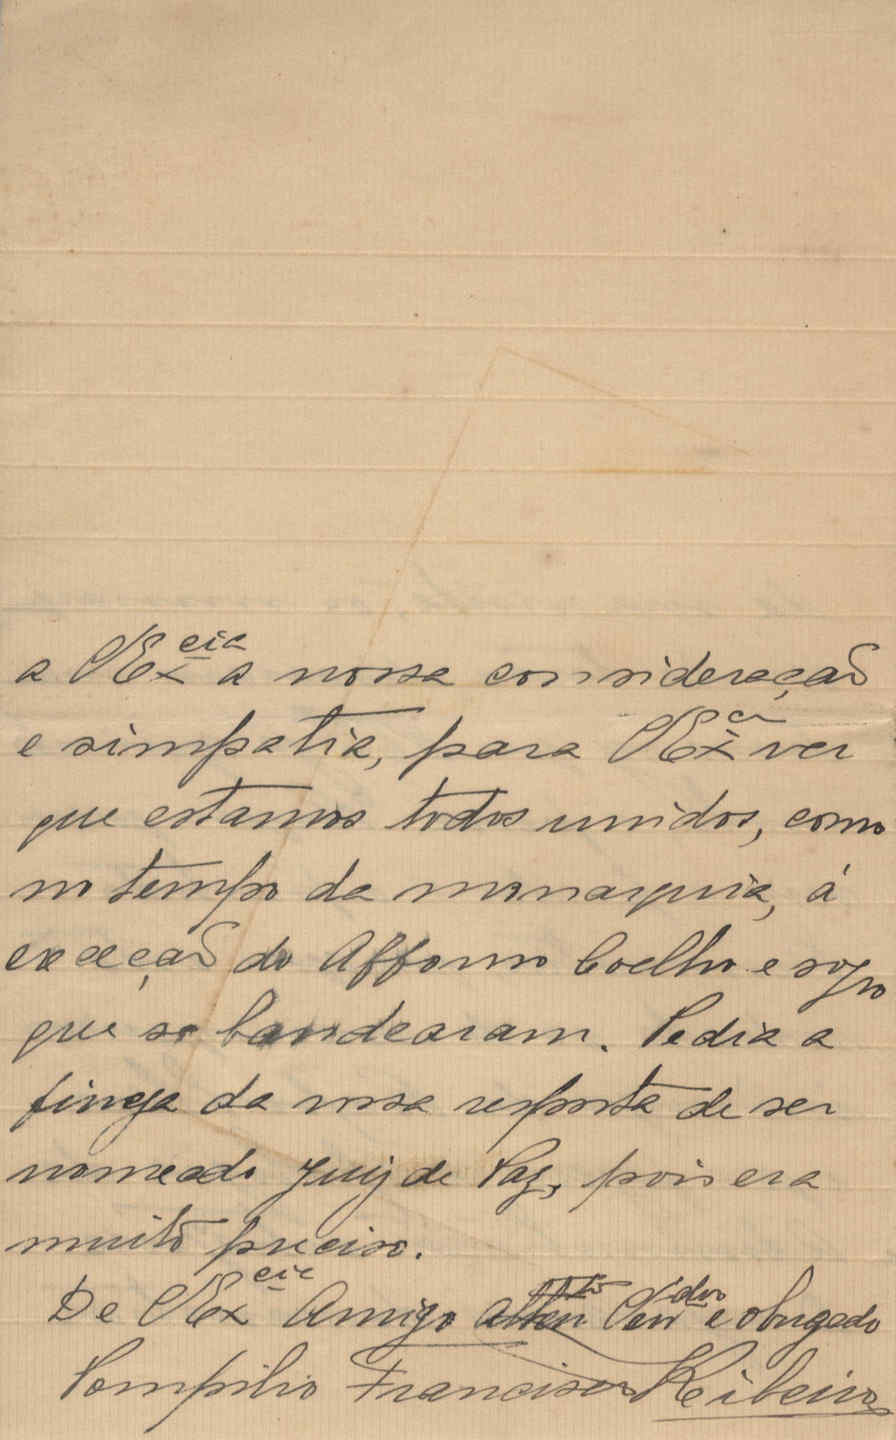 a VExcia a nossa consideração
e simpatia, para VExcia ver
que estamos todos unidos, como
no tempo da monarquia, á
exceção do Affonso Coelho e sogro
que se bandearam. Pedia a
fineza da vossa resposta de ser
nomeado Juiz de Paz, pois era
muito preciso.
De VExcia Amigo atten to Cdor e obrigado
Pompilio Francisco Ribeiro